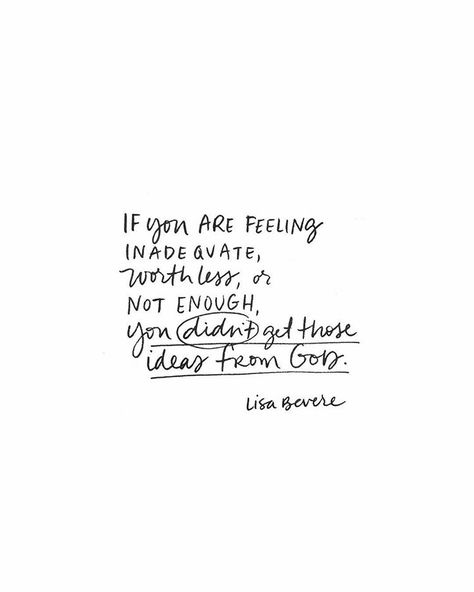 IF you ARE FEELING
INADEQUATE,
worthless, or
NOT ENOUGH,
you didn't get those
ideas from God.
Lisa Bevere